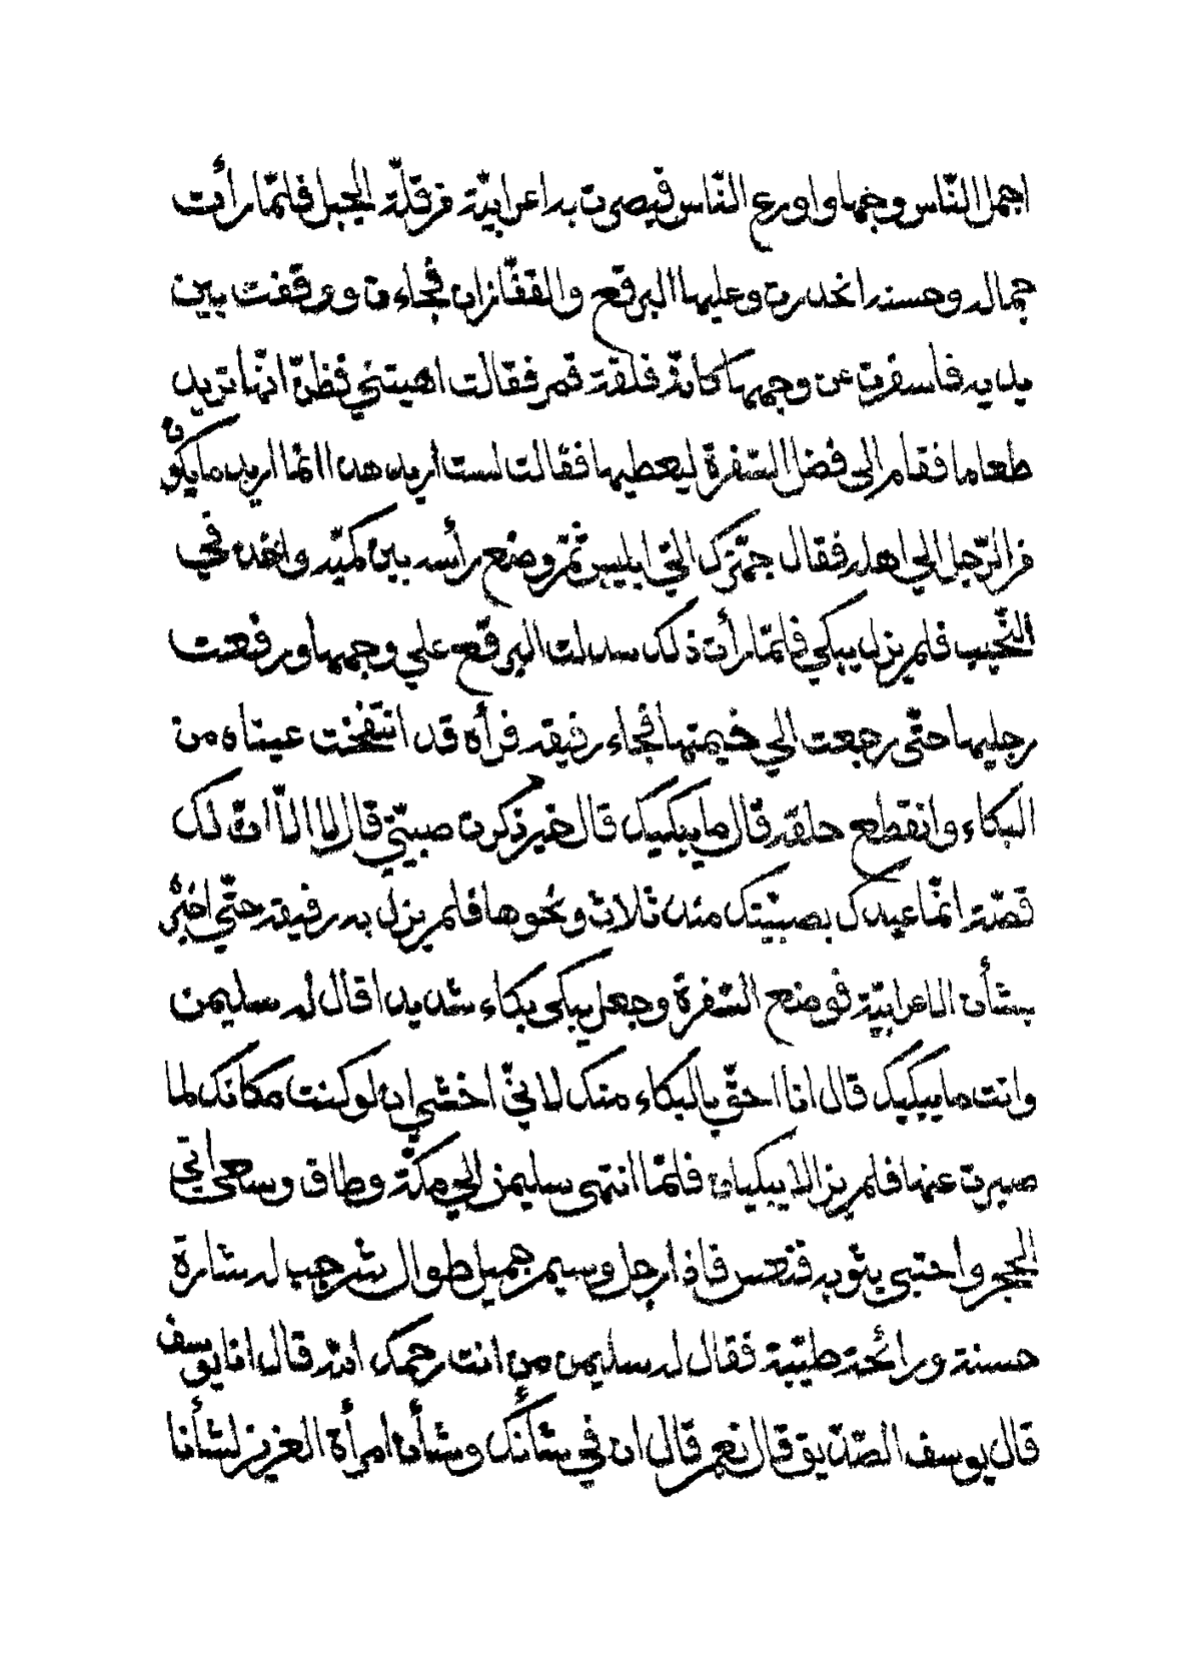 اجمل النّاس وجها واورع النّاس فبصرت به اعرابيّة من قلّة الجبل فلمّا رأت
جماله وحسنه انحدرت وعليها البرقع والقفّازان فجاءت ووقفت بين
يديه فاسفرت عن وجهها كانّه فلقة قمر فقالت اهبتني فظنّ انّها تريد
طعاما فقام الى فضل السّفرة ليعطيها فقالت لست أريد هذا انّما اريد ما يكون
من الرّجل الي اهله فقال جهّزك اليّ ابليس ثمّ وضع رأسه بين كميّه واخذ في
النّحيب فلم يزل يبكي فلمّا رأت ذلك سدلت البرقع علي وجهها ورفعت
رجليها حتّى رجعت الي خيمتها فجاء رفيقه فرأه قد انتفخت عيناه من
البكاء وانقطع حلقه قال ما يبكيك قال خير ذكرت صبيّتي قال لا الّا انّ لك
قصّة انّما عهدك بصبيّتك منذ ثلاث ونحوها فلم يزل به رفيقه حتّي اخبره
بشأن الاعرابيّة فوضع السّفرة وجعل يبكى بكاء شديدا قال له سليمن
وانت ما يبكيك قال انا احقّ بالبكاء منك لانّي اخشي ان لو كنت مكانك لما
صبرت عنها فلم يزالا يبكيان فلمّا انتهى سليمن الي مكّة وطاف وسعى اتي
الحجر واحتبى بثوبه فنعس فاذا رجل وسيم جميل طوال شرجب له شارة
حسنة ورائحة طيّبة فقال له سليمن من انت رحمك الله قال انا يوسف
قال يوسف الصّدّيق قال نعم قال ان في شأنك وشأن امرأة العزيز لشأنا